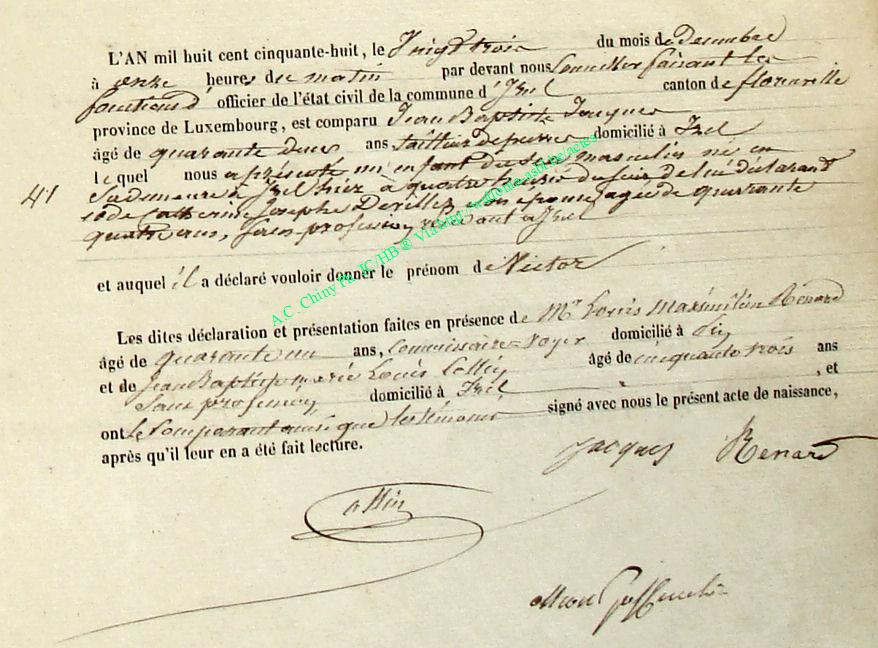 L'AN mil huit cent cinquante-huit, le Vingt trois du mois de Decembre
à onze heures de matin par devant nous Conseiller faisant les
fonctions d' officier de l'état civil de la commune d'Izel canton de florenville
province de Luxembourg, est comparu Jean Baptiste Jacques
âgé de quarante deux ans tailleur de pierres domicilié à Izel
lequel nous a présenté un enfant du sexe masculin né en
41
sa demeure à Izel hier à quatre heures du soir de lui déclarant
et de Catherine Josephe Devillez son épouse agée de quarante
quatre ans, sans profession, à Izel
et auquel il a déclaré vouloir donner le prénom de Victor
Les dites déclaration et présentation faites en présence de Mr Louis Maximilien Renard
âgé de quarante un ans, Commissaire-voyer domicilié à
et de Jean Baptiste Marie Louis Collin âgé de cinquante trois ans
sans profession domicilié à Izel , et
ont le Comparant ainsi que les témoins signé avec nous le présent acte de naissance,
après qu'il leur en a été fait lecture.
Jacques Renard
A.C. Chiny